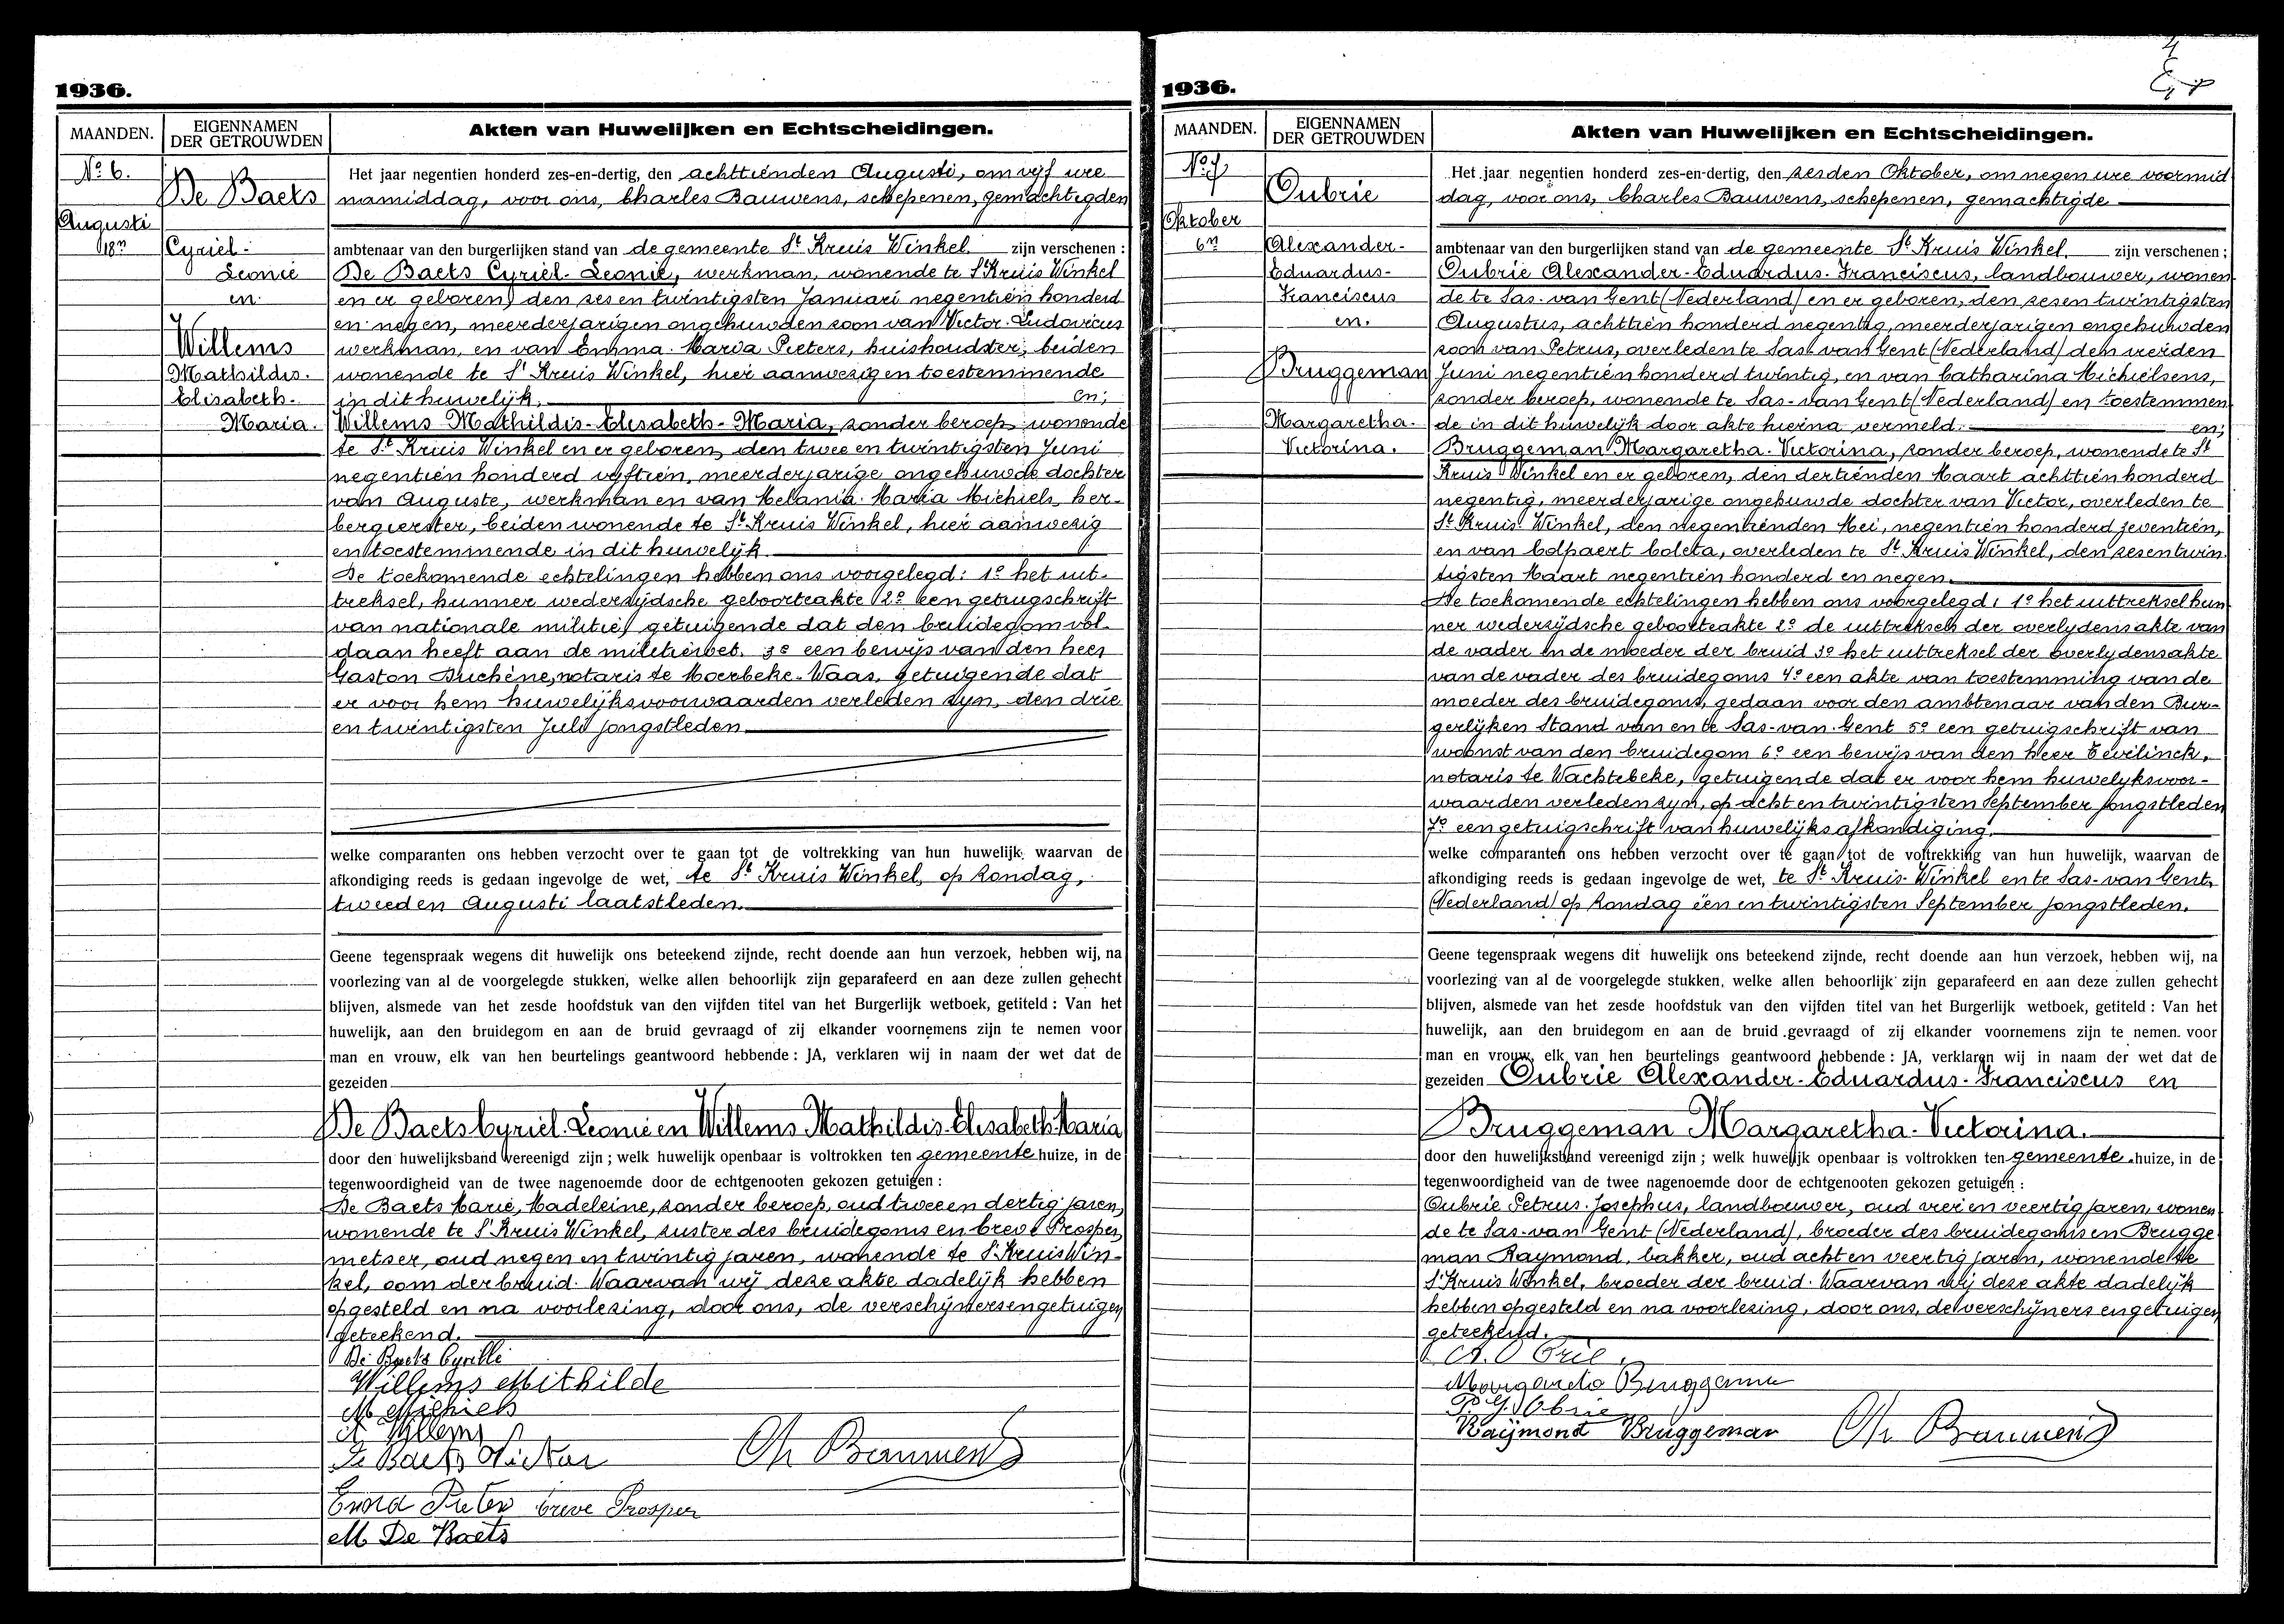 1936.
MAANDEN.
EIGENNAMEN
DER GETROUWDEN
Akten van Huwelijken en Echtscheidingen.
No 6.
De Baets
Augusti
18n
Cyriel-
Leonie
en
Willems
Mathildis.
Elisabeth-
Maria.
Het jaar negentien honderd zes-en-dertig, den achttienden Augusti, om vijf ure
namiddag, voor ons, Charles Bauwens, schepenen, gemachtigden
ambtenaar van den burgerlijken stand van de gemeente St Kruis Winkel zijn verschenen :
De Baets Cyriel-Leonie, werkman, wonende te St Kruis Winkel
en er geboren, den zes en twintigsten Januari negentien honderd
en negen, meerderjarigen ongehuwden zoon van Victor-Ludovicus
werkman, en van Emma-Maria Pieters, huishoudster, beiden
wonende te St Kruis Winkel, hier aanwezig en toestemmende
in dit huwelijk. en;
Willems Mathildis-Elisabeth-Maria, zonder beroep, wonende
te St Kruis Winkel en er geboren, den twee en twintigsten Juni
negentien honderd vijftien, meerderjarige ongehuwde dochter
van Auguste, werkman en van Melania-Maria Michiels, her-
bergierster, beiden wonende te St Kruis Winkel, hier aanwezig
en toestemmende in dit huwelijk.
De toekomende echtelingen hebben ons voorgelegd: 1o het uit-
treksel, hunner wederzijdsche geboorteakte 2o een getuigschrift
van nationale militie, getuigende dat den bruidegom vol-
daan heeft aan de militiewet. 3o een bewijs van den heer
Gaston Buchêne, notaris te Moerbeke-Waas, getuigende dat
er voor hem huwelijksvoorwaarden verleden zyn, den drie
en twintigsten Juli jongstleden.
welke comparanten ons hebben verzocht over te gaan tot de voltrekking van hun huwelijk, waarvan de
afkondiging reeds is gedaan ingevolge de wet, te St Kruis Winkel, op Zondag,
tweeden Augusti laatstleden.
Geene tegenspraak wegens dit huwelijk ons beteekend zijnde, recht doende aan hun verzoek, hebben wij, na
voorlezing van al de voorgelegde stukken, welke allen behoorlijk zijn geparafeerd en aan deze zullen gehecht
blijven, alsmede van het zesde hoofdstuk van den vijfden titel van het Burgerlijk wetboek, getiteld : Van het
huwelijk, aan den bruidegom en aan de bruid gevraagd of zij elkander voornemens zijn te nemen voor
man en vrouw, elk van hen beurtelings geantwoord hebbende : JA, verklaren wij in naam der wet dat de
gezeiden
De Baets Cyriel-Leonie en Willems Mathildis-Elisabeth-Maria
door den huwelijksband vereenigd zijn ; welk huwelijk openbaar is voltrokken ten gemeente huize, in de
tegenwoordigheid van de twee nagenoemde door de echtgenooten gekozen getuigen :
De Baets Marie, Madeleine, zonder beroep, oud twee en dertig jaren,
wonende te St Kruis Winkel, zuster des bruidegoms en Creve Prosper,
metser, oud negen en twintig jaren, wonende te St Kruis Win-
kel, oom der bruid. Waarvan wij deze akte dadelijk hebben
opgesteld en na voorlezing, door ons, de verschijners en getuigen
geteekend.
De Baets Cyrille
Willems Mithilde
M Michiels
A Willems
De Baets Victor
Ch Bauwens
Emma Pieters Creve Prosper
M De Baets
1936.
4
MAANDEN.
EIGENNAMEN
DER GETROUWDEN
Akten van Huwelijken en Echtscheidingen.
No 7
Oubrie
Oktober
6n
Alexander-
Eduardus-
Franciscus
en.
Bruggeman
Margaretha-
Victorina.
Het jaar negentien honderd zes-en-dertig, den zesden Oktober, om negen ure voormid
dag, voor ons, Charles Bauwens, schepenen, gemachtigde
ambtenaar van den burgerlijken stand van de gemeente St Kruis Winkel. zijn verschenen :
Oubrie Alexander-Eduardus-Franciscus, landbouwer, wonen
de te Sas-van Gent (Nederland) en er geboren, den zesen twintigsten
Augustus, achttien honderd negentig, meerderjarigen ongehuwden
zoon van Petrus, overleden te Sas-van Gent (Nederland) den vierden
Juni negentien honderd twintig, en van Catharina Michielsens,
zonder beroep, wonende te Sas-van Gent (Nederland) en toestemmen
de in dit huwelijk door akte hierna vermeld. en;
Bruggeman Margaretha-Victorina, zonder beroep, wonende te St
Kruis Winkel en er geboren, den dertienden Maart achttien honderd
negentig, meerderjarige ongehuwde dochter van Victor, overleden te
St Kruis-Winkel, den negentienden Mei, negentien honderd zeventien,
en van Colpaert Coleta, overleden te St Kruis Winkel, den zesentwin
tigsten Maart negentien honderd en negen.
De toekomende echtelingen hebben ons voorgelegd: 1o het uittreksel hun
ner wederzijdsche geboorteakte 2o de uittreksels der overlydensakte van
de vader en de moeder der bruid 3o het uittreksel der overlydensakte
van de vader des bruidegoms 4o een akte van toestemming van de
moeder des bruidegoms, gedaan voor den ambtenaar van den Bur-
gerlijken Stand van en te Sas-van-Gent 5o een getuigschrift van
woonst van den bruidegom 6o een bewijs van den heer Eevilinck,
notaris te Wachtebeke, getuigende dat er voor hem huwelyksvoor-
waarden verleden zyn, op acht en twintigsten September jongstleden
7o een getuigschrift van huwelijksafkondiging.
welke comparanten ons hebben verzocht over te gaan tot de voltrekking van hun huwelijk, waarvan de
afkondiging reeds is gedaan ingevolge de wet, te St Kruis-Winkel en te Sas-van Gent,
(Nederland) op Zondag een en twintigsten September jongstleden.
Geene tegenspraak wegens dit huwelijk ons beteekend zijnde, recht doende aan hun verzoek, hebben wij, na
voorlezing van al de voorgelegde stukken, welke allen behoorlijk zijn geparafeerd en aan deze zullen gehecht
blijven, alsmede van het zesde hoofdstuk van den vijfden titel van het Burgerlijk wetboek, getiteld : Van het
huwelijk, aan den bruidegom en aan de bruid gevraagd of zij elkander voornemens zijn te nemen voor
man en vrouw, elk van hen beurtelings geantwoord hebbende : JA, verklaren wij in naam der wet dat de
gezeiden Oubrie Alexander-Eduardus-Franciscus en
Bruggeman Margaretha-Victorina.
door den huwelijksband vereenigd zijn ; welk huwelijk openbaar is voltrokken ten gemeente huize, in de
tegenwoordigheid van de twee nagenoemde door de echtgenooten gekozen getuigen :
Oubrie Petrus-Josephus, landbouwer, oud vier en veertig jaren, wonen
de te Sas-van Gent (Nederland), broeder des bruidegoms en Brugge
man Raymond, bakker, oud acht en veertig jaren, wonende te
St Kruis Winkel, broeder der bruid. Waarvan wij deze akte dadelijk
hebben opgesteld en na voorlezing, door ons, de verschijners en getuigen
geteekend.
Bruggeman
Raÿmond Bruggeman Ch Bauwens